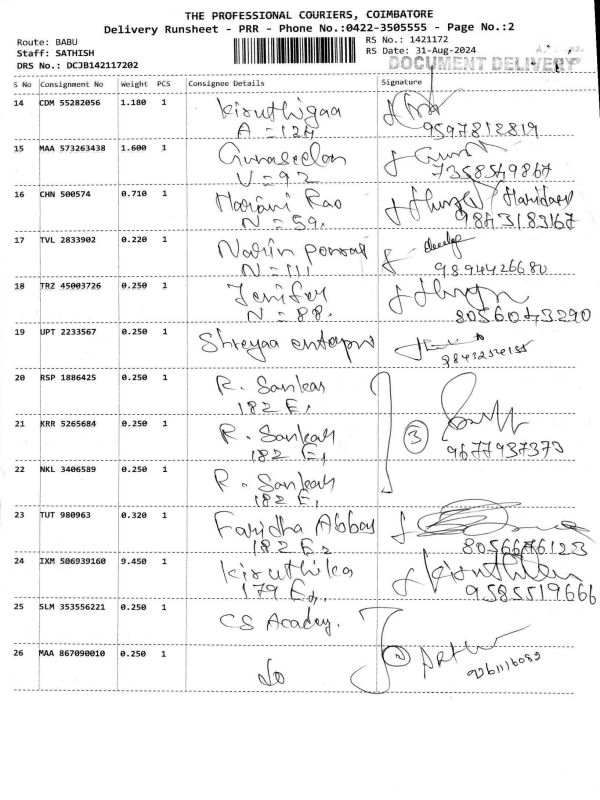 THE PROFESSIONAL COURIERS, COIMBATORE
Delivery Runsheet - PRR - Phone No.:0422-3505555 - Page No.:2
Route: BABU
RS No.: 1421172
Staff: SATHISH
RS Date: 31-Aug-2024
DRS No.: DCJB142117202
DOCUMENT DELIVERY
S No Consignment No Weight PCS Consignee Details Signature
14 CDM 55282056 1.180 1 Kiruthigaa
A = 124
9597812819
15 MAA 573263438 1.600 1 Gunaseelan
V = 92
7358549867
16 CHN 500574 0.710 1 Harini Rao
N = 59.
9843183167
17 TVL 2833902 0.220 1 Narin
N = 111
9894426680
18 TRZ 45003726 0.250 1 Jenifer
N = 88.
8056043290
19 UPT 2233567 0.250 1 Shreyaa enterpr
20 RSP 1886425 0.250 1 R. Sankar
182 E,
21 KRR 5265684 0.250 1 R. Sankar
182 E,
3
9677937373
22 NKL 3406589 0.250 1 R. Sankar
182 E,
23 TUT 980963 0.320 1 Faridha Abbas
182 E2
8056676123
24 IXM 506939160 9.450 1 Kiruthika
179 E
Kiruthika
9585519666
25 SLM 353556221 0.250 1 CS Acadey.
26 MAA 867090010 0.250 1 do
2